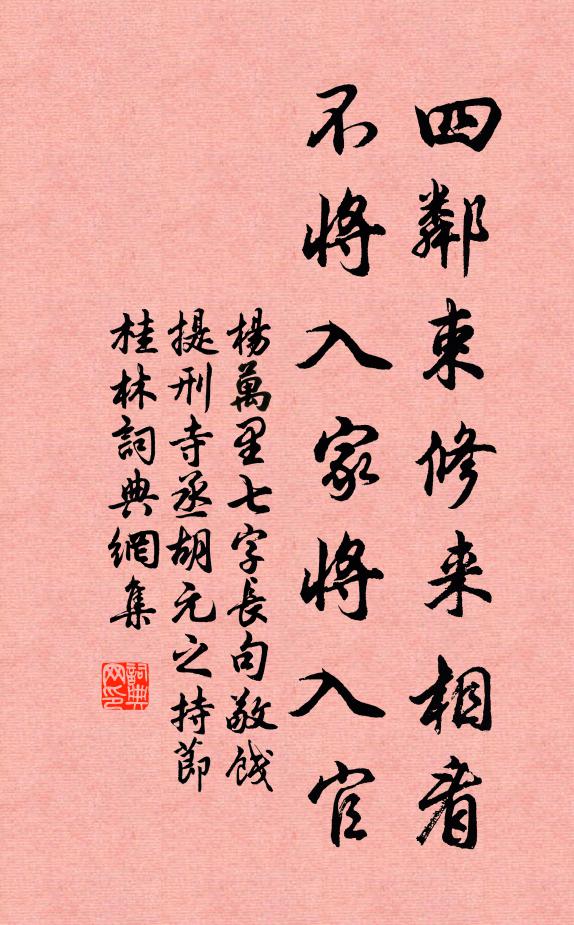 四鄰束修来相看
不將入家將入官
楊萬里七字長句敬餞
提刑寺丞胡元之持節
桂林詞典網集
詞典
网印